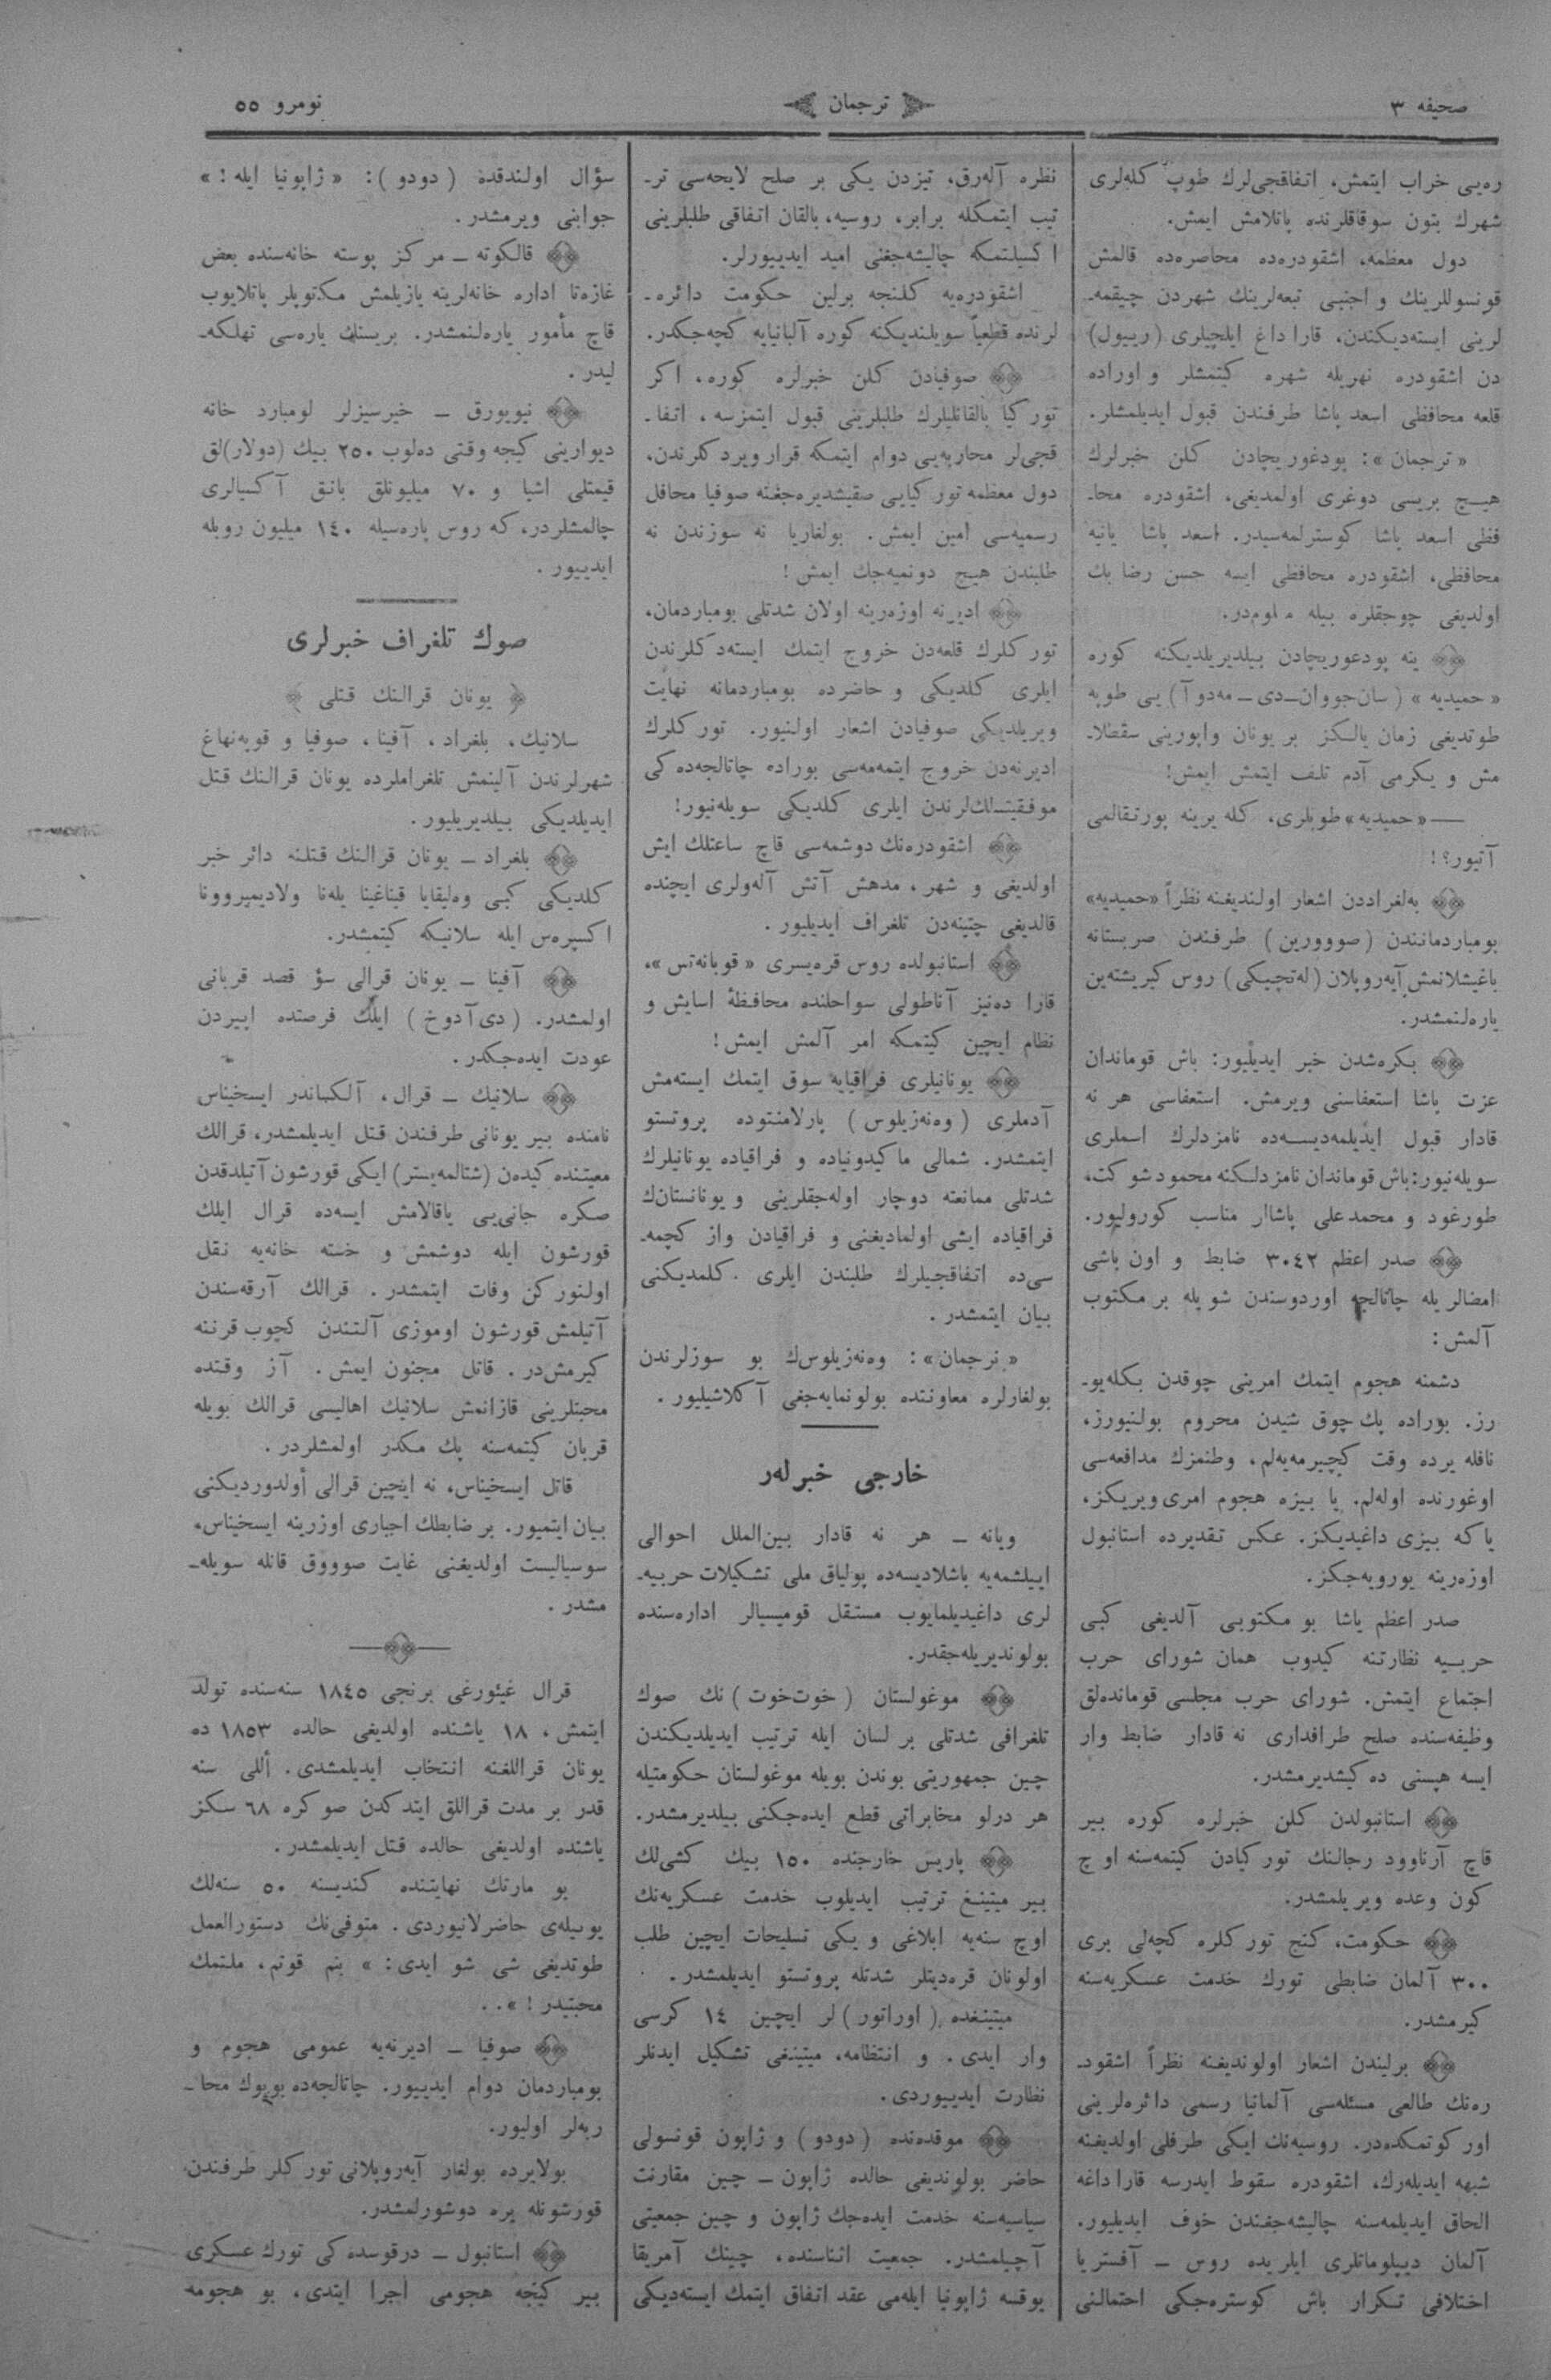 صحیفه ۳
ترجمان
نومرو ٥٥
ره‌یی خراب ایتمش، اتفاقجی‌لرك طوپ كله‌لری
شهرك بتون سوقاقلرنده پاتلامش ایمش.
دول معظمه، اشقودره‌ده محاصره‌ده قالمش
قونسوللرینك و اجنبی تبعه‌لرینك شهردن چیقمه‌ـ
لرینی ایسته‌دیكندن، قارا داغ ایلچیلری (ریبول)
دن اشقودره نهریله شهره كیتمشلر و اوراده
قلعه محافظی اسعد پاشا طرفندن قبول ایدیلمشلر.
« ترجمان »: پودغوریچادن كلن خبرلرك
هیـچ بریسی دوغری اولمدیغی، اشقودره محاـ
فظی اسعد پاشا كوسترلمه‌سیدر. اسعد پاشا یانیه
محافظی، اشقودره محافظی ایسه حسن رضا بك
اولدیغی چوجقلره بیله معلومدر.
ینه پودغوریچادن بیلدیریلدیكنه كوره
« حمیدیه » (سان‌جووان‌ـ‌دی‌ـ‌مه‌دوآ) یی طوپه
طوتدیغی زمان یالكز بر یونان واپورینی سقطلاـ
مش و یكرمی آدم تلف ایتمش ایمش!
—«حمیدیه» طوپلری، كله یرینه پورتقالمی
آتیور؟!
به‌لغراددن اشعار اولندیغنه نظراً «حمیدیه»
بومباردمانندن (صووورین) طرفندن صربستانه
باغیشلانمش آیه‌روپلان (له‌تچیكی) روس كیریشته‌ین
یاره‌لنمشدر.
بكره‌شدن خبر ایدیلیور: باش قوماندان
عزت پاشا استعفاسنی ویرمش. استعفاسی هر نه
قادار قبول ایدیلمه‌دیسه‌ده نامزدلرك اسملری
سویله‌نیور: باش قوماندان نامزدلكنه محمود شوكت،
طورغود و محمد علی پاشالر مناسب كورولیور.
صدر اعظم ۳۰٤۲ ضابط و اون باشی
امضالریله چاتالجه اوردوسندن شویله بر مكتوب
آلمش:
دشمنه هجوم ایتمك امرینی چوقدن بكله‌یوـ
رز. بوراده پك چوق شیدن محروم بولنیورز،
نافله یرده وقت كچیرمه‌یه‌لم، وطنمزك مدافعه‌سی
اوغورنده اوله‌لم. یا بیزه هجوم امری ویریكز،
یا كه بیزی داغیدیكز. عكس تقدیرده استانبول
اوزه‌رینه یورویه‌جكز.
صدر اعظم پاشا بو مكتوبی آلدیغی كبی
حربیه نظارتنه كیدوب همان شورای حرب
اجتماع ایتمش. شورای حرب مجلسی قوماندەلق
وظیفه‌سنده صلح طرافداری نه قادار ضابط وار
ایسه هپسنی ده‌كیشدیرمشدر.
استانبولدن كلن خبرلره كوره بیر
قاچ آرناوود رجالنك توركیادن كیتمه‌سنه اوچ
كون وعده ویریلمشدر.
حكومت، كنج توركلره كچه‌لی بری
۳۰۰ آلمان ضابطی تورك خدمت عسكریه‌سنه
كیرمشدر.
برلیندن اشعار اولوندیغنه نظراً اشقودـ
ره‌نك طالعی مسئله‌سی آلمانیا رسمی دائره‌لرینی
اوركوتمكده‌در. روسیه‌نك ایكی طرفلی اولدیغنه
شبهه ایدیله‌رك، اشقودره سقوط ایدرسه قارا داغه
الحاق ایدیلمه‌سنه چالیشه‌جغندن خوف ایدیلیور.
آلمان دیپلوماتلری ایلریده روس ـ آفستریا
اختلافی تكرار باش كوستره‌جكی احتمالنی
نظره آله‌رق، تیزدن یكی بر صلح لایحه‌سی ترـ
تیب ایتمكله برابر، روسیه، بالقان اتفاقی طلبلرینی
اكسیلتمكه چالیشه‌جغنی امید ایدییورلر.
اشقودره‌یه كلنجه برلین حكومت دائره‌ـ
لرنده قطعیاً سویلندیكنه كوره آلبانیایه كچه‌جكدر.
صوفیادن كلن خبرلره كوره، اكر
توركیا بالقانلیلرك طلبلرینی قبول ایتمزسه، اتفاـ
قجی‌لر محاربه‌یی دوام ایتمكه قرار ویردكلرندن،
دول معظمه توركیایی صقیشدیره‌جغنه صوفیا محافل
رسمیه‌سی امین ایمش. بولغاریا نه سوزندن نه
طلبندن هیچ دونمیه‌جك ایمش!
ادیرنه اوزه‌رینه اولان شدتلی بومباردمان،
توركلرك قلعه‌دن خروج ایتمك ایسته‌دكلرندن
ایلری كلدیكی و حاضرده بومباردمانه نهایت
ویریلدیكی صوفیادن اشعار اولنیور. توركلرك
ادیرنه‌دن خروج ایتمه‌مه‌سی بوراده چاتالجه‌ده‌كی
موفقیتـ‌لك‌لرندن ایلری كلدیكی سویله‌نیور!
اشقودره‌نك دوشمه‌سی قاچ ساعتلك ایش
اولدیغی و شهر، مدهش آتش آله‌ولری ایچنده
قالدیغی چتینه‌دن تلغراف ایدیلیور.
استانبولده روس قره‌یسری « قوبانه‌تس »،
قارا ده‌نیز آناطولی سواحلنده محافظهٔ اسایش و
نظام ایچین كیتمكه امر آلمش ایمش!
یونانیلری فراقیایه سوق ایتمك ایسته‌مش
آدملری (وه‌نه‌زیلوس) پارلامنتوده پروتستو
ایتمشدر. شمالی ماكیدونیاده و فراقیاده یونانیلرك
شدتلی ممانعته دوچار اوله‌جقلرینی و یونانستان‌ك
فراقیاده ایشی اولمادیغنی و فراقیادن واز كچمه‌ـ
سی‌ده اتفاقجیلرك طلبندن ایلری كلمدیكنی
بیان ایتمشدر.
« ترجمان »: وه‌نه‌زیلوس‌ك بو سوزلرندن
بولغارلره معاونتده بولونمایه‌جغی آكلاشیلیور.
خارجی خبرلەر
ویانه ـ هر نه قادار بین‌الملل احوالی
اییلشمه‌یه باشلادیسه‌ده پولیاق ملی تشكیلات حربیه‌ـ
لری داغیدیلمایوب مستقل قومیسیالر اداره‌سنده
بولوندیریله‌جقدر.
موغولستان (خوت‌خوت) نك صوك
تلغرافی شدتلی بر لسان ایله ترتیب ایدیلدیكندن
چین جمهوریتی بوندن بویله موغولستان حكومتیله
هر درلو مخابراتی قطع ایده‌جكنی بیلدیرمشدر.
پاریس خارجنده ۱٥۰ بیك كشی‌لك
بیر میتینغ ترتیب ایدیلوب خدمت عسكریه‌نك
اوچ سنه‌یه ابلاغی و یكی تسلیحات ایچین طلب
اولونان قره‌دیتلر شدتله پروتستو ایدیلمشدر.
میتینغده (اوراتور) لر ایچین ۱٤ كرسی
وار ایدی. و انتظامه، میتینغی تشكیل ایدنلر
نظارت ایدییوردی.
موقده‌نده (دودو) و ژاپون قونسولی
حاضر بولوندیغی حالده ژاپون ـ چین مقارنت
سیاسیه‌سنه خدمت ایده‌جك ژاپون و چین جمعیتی
آچیلمشدر. جمعیت اثناسنده، چینك آمریقا
یوقسه ژاپونیا ایله‌می عقد اتفاق ایتمك ایسته‌دیكی
سؤال اولندقده (دودو): « ژاپونیا ایله! »
جوابنی ویرمشدر.
قالكوته ـ مركز پوسته خانه‌سنده بعض
غازه‌تا اداره خانه‌لرینه یازیلمش مكتوبلر پاتلایوب
قاچ مأمور یاره‌لنمشدر. بریسنك یاره‌سی تهلكه‌ـ
لیدر.
نیویورق ـ خیرسیزلر لومبارد خانه
دیوارینی كیجه وقتی ده‌لوب ۲٥۰ بیك (دولار)لق
قیمتلی اشیا و ۷۰ میلیونلق بانق آكسیالری
چالمشلردر، كه روس پاره‌سیله ۱٤۰ میلیون روبله
ایدییور.
صوك تلغراف خبرلری
یونان قرالنك قتلی
سلانیك، بلغراد، آفینا، صوفیا و قوپه‌نهاغ
شهرلرندن آلینمش تلغراملرده یونان قرالنك قتل
ایدیلدیكی بیلدیریلیور.
بلغراد ـ یونان قرالنك قتلنه دائر خبر
كلدیكی كبی وه‌لیقایا قیناغینا یله‌نا ولادیمیروونا
اكسپره‌س ایله سلانیكه كیتمشدر.
آفینا ـ یونان قرالی سؤ قصد قربانی
اولمشدر. (دی‌آدوخ) ایلك فرصتده ایپردن
عودت ایده‌جكدر.
سلانیك ـ قرال، آلكساندر ایسخیناس
نامنده بیر یونانی طرفندن قتل ایدیلمشدر، قرالك
معیتنده كیده‌ن (شتالمه‌یستر) ایكی قورشون آتیلدقدن
صكره جانی‌یی یاقالامش ایسه‌ده قرال ایلك
قورشون ایله دوشمش و خسته خانه‌یه نقل
اولنوركن وفات ایتمشدر. قرالك آرقه‌سندن
آتیلمش قورشون اوموزی آلتندن كچوب قرننه
كیرمش‌در. قاتل مجنون ایمش. آز وقتده
محبتلرینی قازانمش سلانیك اهالیسی قرالك بویله
قربان كیتمه‌سنه پك مكدر اولمشلردر.
قاتل ایسخیناس، نه ایچین قرالی أولدوردیكنی
بیان ایتمیور. بر ضابطك اجباری اوزرینه ایسخیناس،
سوسیالیست اولدیغنی غایت صوووق قانله سویله‌ـ
مشدر.
قرال غیئورغی برنجی ۱۸٤٥ سنه‌سنده تولد
ایتمش، ۱۸ یاشنده اولدیغی حالده ۱۸٥۳ ده
یونان قراللغنه انتخاب ایدیلمشدی. أللی سنه
قدر بر مدت قراللق ایتدكدن صوكره ٦۸ سكز
یاشنده اولدیغی حالده قتل ایدیلمشدر.
بو مارتك نهایتنده كندیسنه ٥۰ سنه‌لك
یوبیله‌ی حاضرلانیوردی. متوفی‌نك دستورالعمل
طوتدیغی شی شو ایدی: » بنم قوتم، ملتمك
محبتیدر! »..
صوفیا ـ ادیرنه‌یه عمومی هجوم و
بومباردمان دوام ایدییور. چاتالجه‌ده بویوك محاـ
ربه‌لر اولیور.
بولایرده بولغار آیه‌روپلانی توركلر طرفندن،
قورشونله یره دوشورلمشدر.
استانبول ـ درقوسده‌كی تورك عسكری
بیر كیجه هجومی اجرا ایتدی، بو هجومه